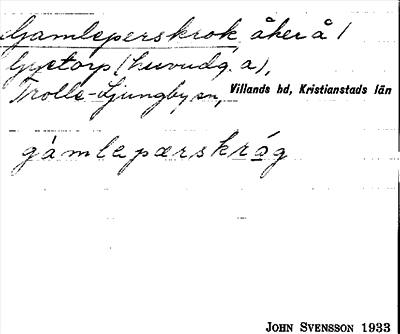 Gamleperskrok, åker å 1
Gyetorp (huvudg. a),
Trolle-Ljungby sn, Villands hd, Kristianstads län
gàmlepærskrǻg
JOHN SVENSSON 1933